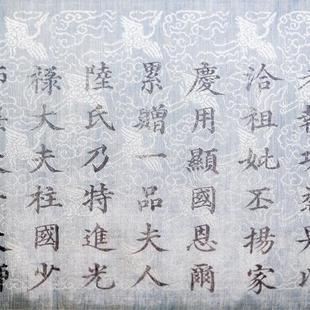 洽祖妣丕揚家
慶用顯國恩爾
累贈一品夫人
陸氏乃特進光
祿大夫柱國少
師兼太子太傅